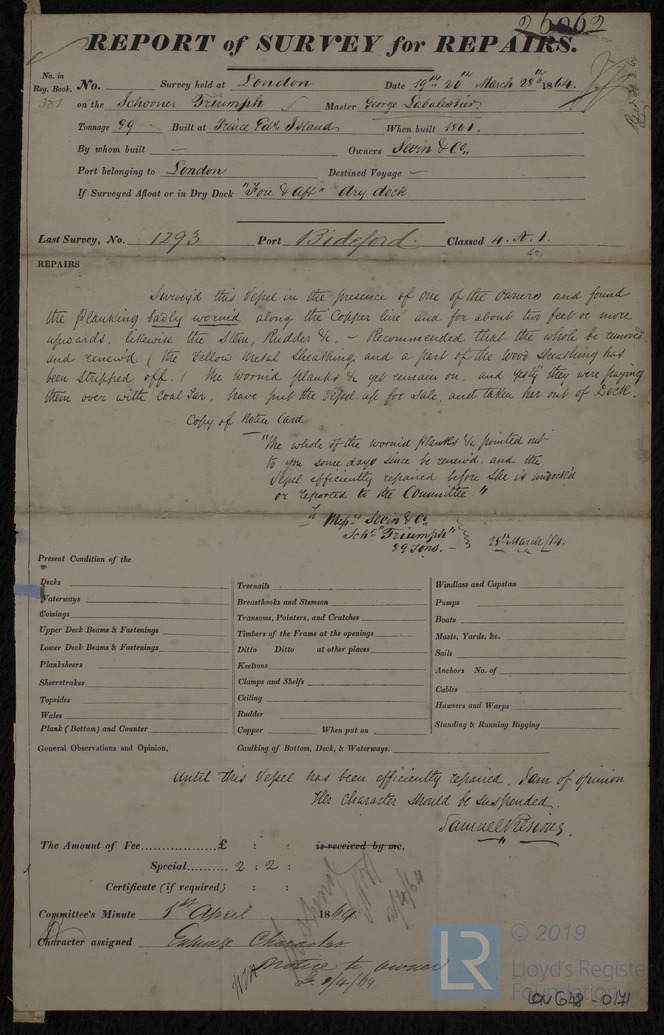 26062
REPORT of SURVEY for REPAIRS.
No. in Reg. Book. No. Survey held at London Date 19th 26th March 28th 1864.
381 on the Schooner Triumph Master George
Tonnage 89 Built at Prince Edwd Island When built 1861.
By whom built — Owners Sevin & Co.
Port belonging to London Destined Voyage —
If Surveyed Afloat or in Dry Dock "Fore & Aft" dry dock
Last Survey, No. 1293 Port Bideford. Classed 4. A. 1.
REPAIRS
Survey'd this Vessel in the presence of one of the owners and found
the Planking sadly wormid along the Copper line and for about two feet or more
upwards. likewise the Stem, Rudder &c. – Recommended that the whole be removed
and renew'd (the Yellow Metal Sheathing, and a part of the Wood Sheathing has
been stripped off.) The wormid planks &c yet remain on. and yesty they were paying
them over with Coal Tar, have put the Vessel up for Sale, and taken her out of Dock.
Copy of Notice Card
"The whole of the wormid planks &c pointed out
to you some days since be renew'd and the
Vessel efficiently repaired before she is undock'd
or reported to the Committee"
To Messrs Sevin & Co.
Schr "Triumph"
89 Tons. — 28th March/64.
Present Condition of the
Decks
Waterways
Comings
Upper Deck Beams & Fastenings
Lower Deck Beams & Fastenings
Planksheers
Sheerstrakes
Topsides
Wales
Plank (Bottom) and Counter
Treenails
Breasthooks and Stemson
Transoms, Pointers, and Crutches
Timbers of the Frame at the openings
Ditto Ditto at other places
Keelsons
Clamps and Shelfs
Ceiling
Rudder
Copper When put on
Windlass and Capstan
Pumps
Boats
Masts, Yards, &c.
Sails
Anchors No. of
Cables
Hawsers and Warps
Standing & Running Rigging
General Observations and Opinion, Caulking of Bottom, Deck, & Waterways.
Until this Vessel has been efficiently repaired. I am of opinion
Her character should be suspended.
Samuel
The Amount of Fee............... £ : : is received by me,
Special....... 2 : 2 :
Certificate (if required) : :
Committee's Minute 1st April 1864
Character assigned Expunge Character
Notice to owner
2/4/64
LR © 2019
Lloyd's Register
Foundation
LON 648 - 0171